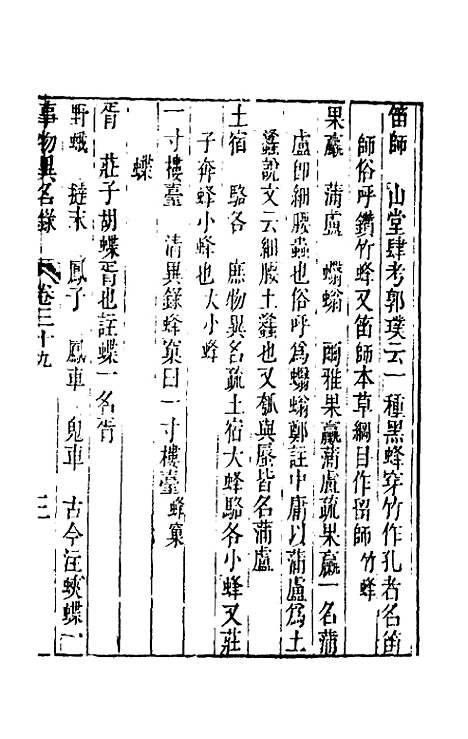 笛師　山堂肆考郭璞云一種黑蜂穿竹作孔者名笛
師俗呼鑽竹蜂又笛師本草綱目作留師竹蜂
果蠃　蒲盧　蠮螉　爾雅果蠃蒲盧疏果蠃一名蒲
盧卽細腰蟲也俗呼爲蠮螉鄭註中庸以蒲盧爲土
蠭說文云細腰土蠭也又瓠與蜃皆名蒲盧
土宿　駱各　庶物異名疏土宿大蜂駱各小蜂又莊
子奔蜂小蜂也大小蜂
一寸樓臺　清異錄蜂窠曰一寸樓臺蜂窠
蝶
胥　莊子胡蝶胥也註蝶一名胥
野蛾　撻末　鳳子　鳳車　鬼車　古今注蛺蝶一
事物異名錄　卷三十九　三